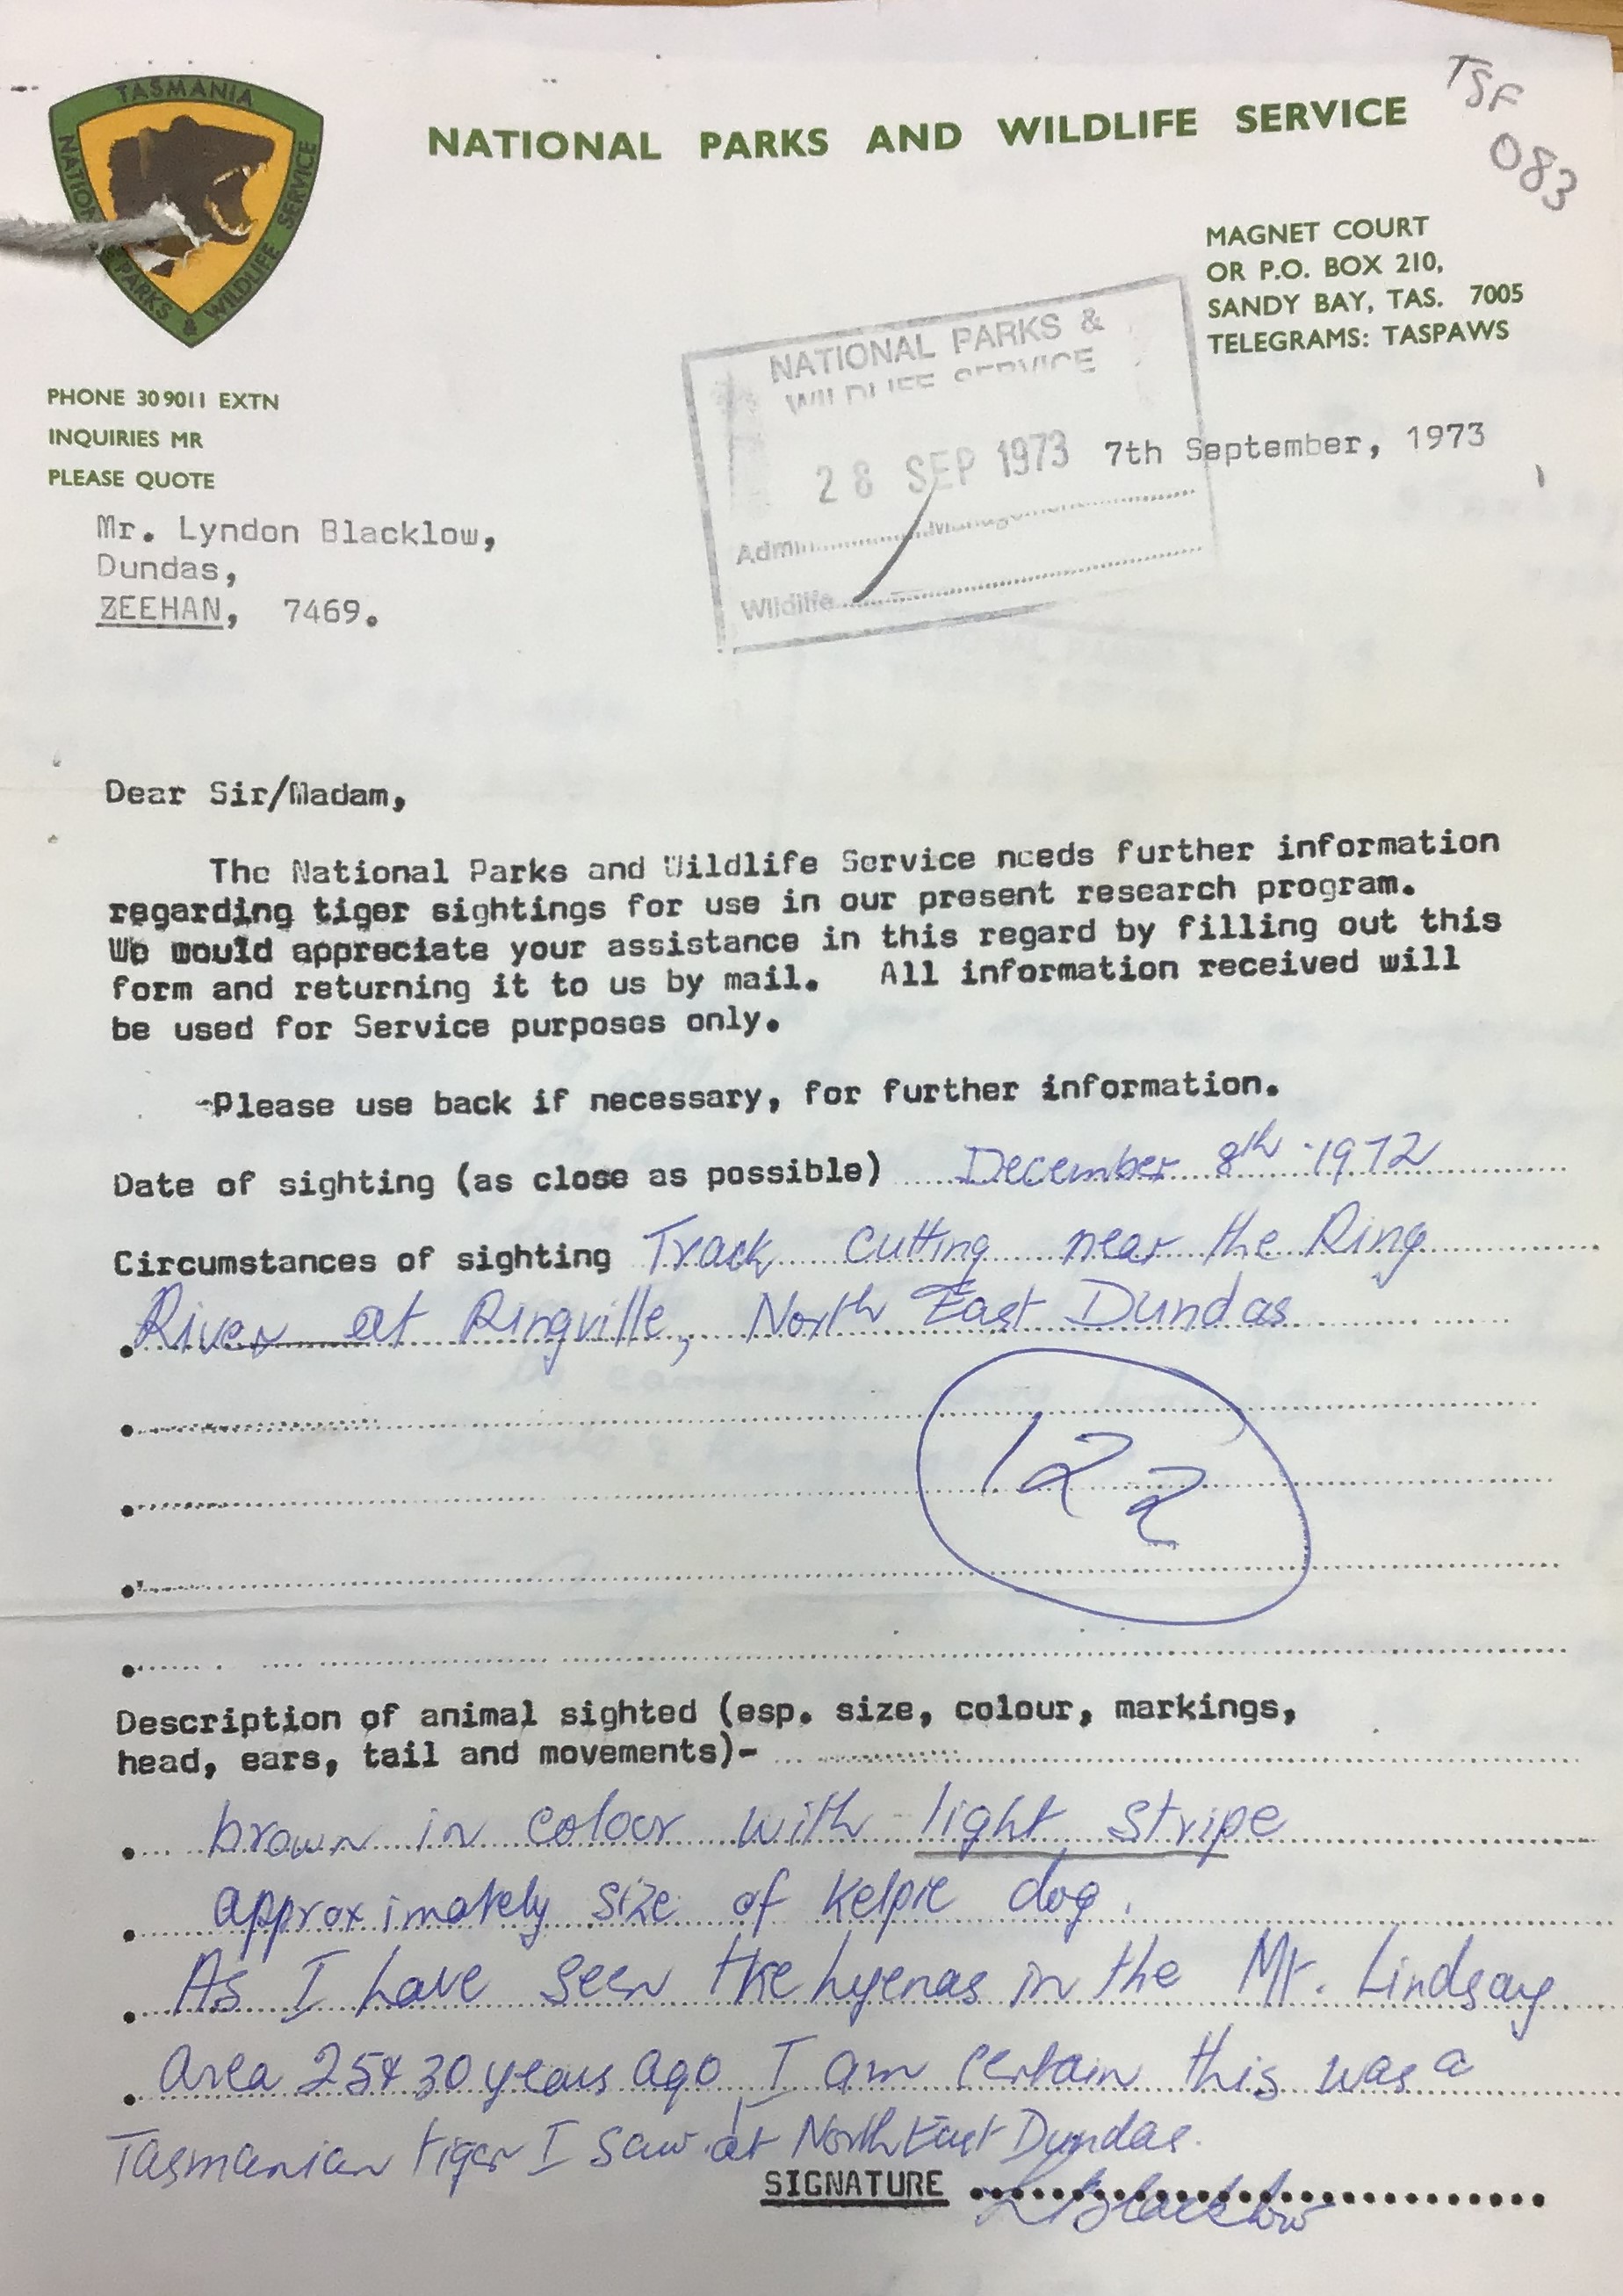 TASMANIA
NATIONAL PARKS & WILDLIFE SERVICE
NATIONAL PARKS AND WILDLIFE SERVICE
TSF
083
MAGNET COURT
OR P.O. BOX 210,
SANDY BAY, TAS. 7005
TELEGRAMS: TASPAWS
PHONE 30 9011 EXTN
INQUIRIES MR
PLEASE QUOTE
NATIONAL PARKS &
WILDLIFE SERVICE
28 SEP 1973
Admin Management
Wildlife
7th September, 1973
Mr. Lyndon Blacklow,
Dundas,
ZEEHAN, 7469.
Dear Sir/Madam,
The National Parks and Wildlife Service needs further information
regarding tiger sightings for use in our present research program.
We would appreciate your assistance in this regard by filling out this
form and returning it to us by mail. All information received will
be used for Service purposes only.
-Please use back if necessary, for further information.
Date of sighting (as close as possible) December 8th 1972
Circumstances of sighting Track cutting near the Ring
River at Ringville, North East Dundas
122
Description of animal sighted (esp. size, colour, markings,
head, ears, tail and movements)-
brown in colour with light stripe
approximately size of kelpie dog.
As I have seen the hyenas in the Mt. Lindsay
area 25 & 30 years ago I am certain this was a
Tasmanian tiger I saw at North East Dundas.
SIGNATURE L Blacklow